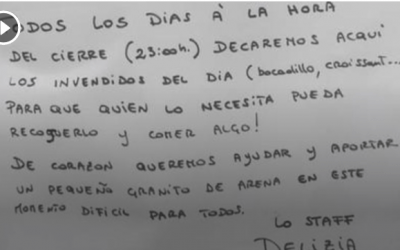 TODOS LOS DIAS À LA HORA
DEL CIERRE (23:00h.) DECAREMOS ACQUÍ
LOS INVENDIDOS DEL DIA (bocadillo, croissant...
PARA QUE QUIEN LO NECESITA PUEDA
RECOGUERLO Y COMER ALGO!
DE CORAZON QUEREMOS AYUDAR Y APORTAR
UN PEQUEÑO GRANITO DE ARENA EN ESTE
MOMENTO DIFICIL PARA TODOS.
LO STAFF
DELIZIA